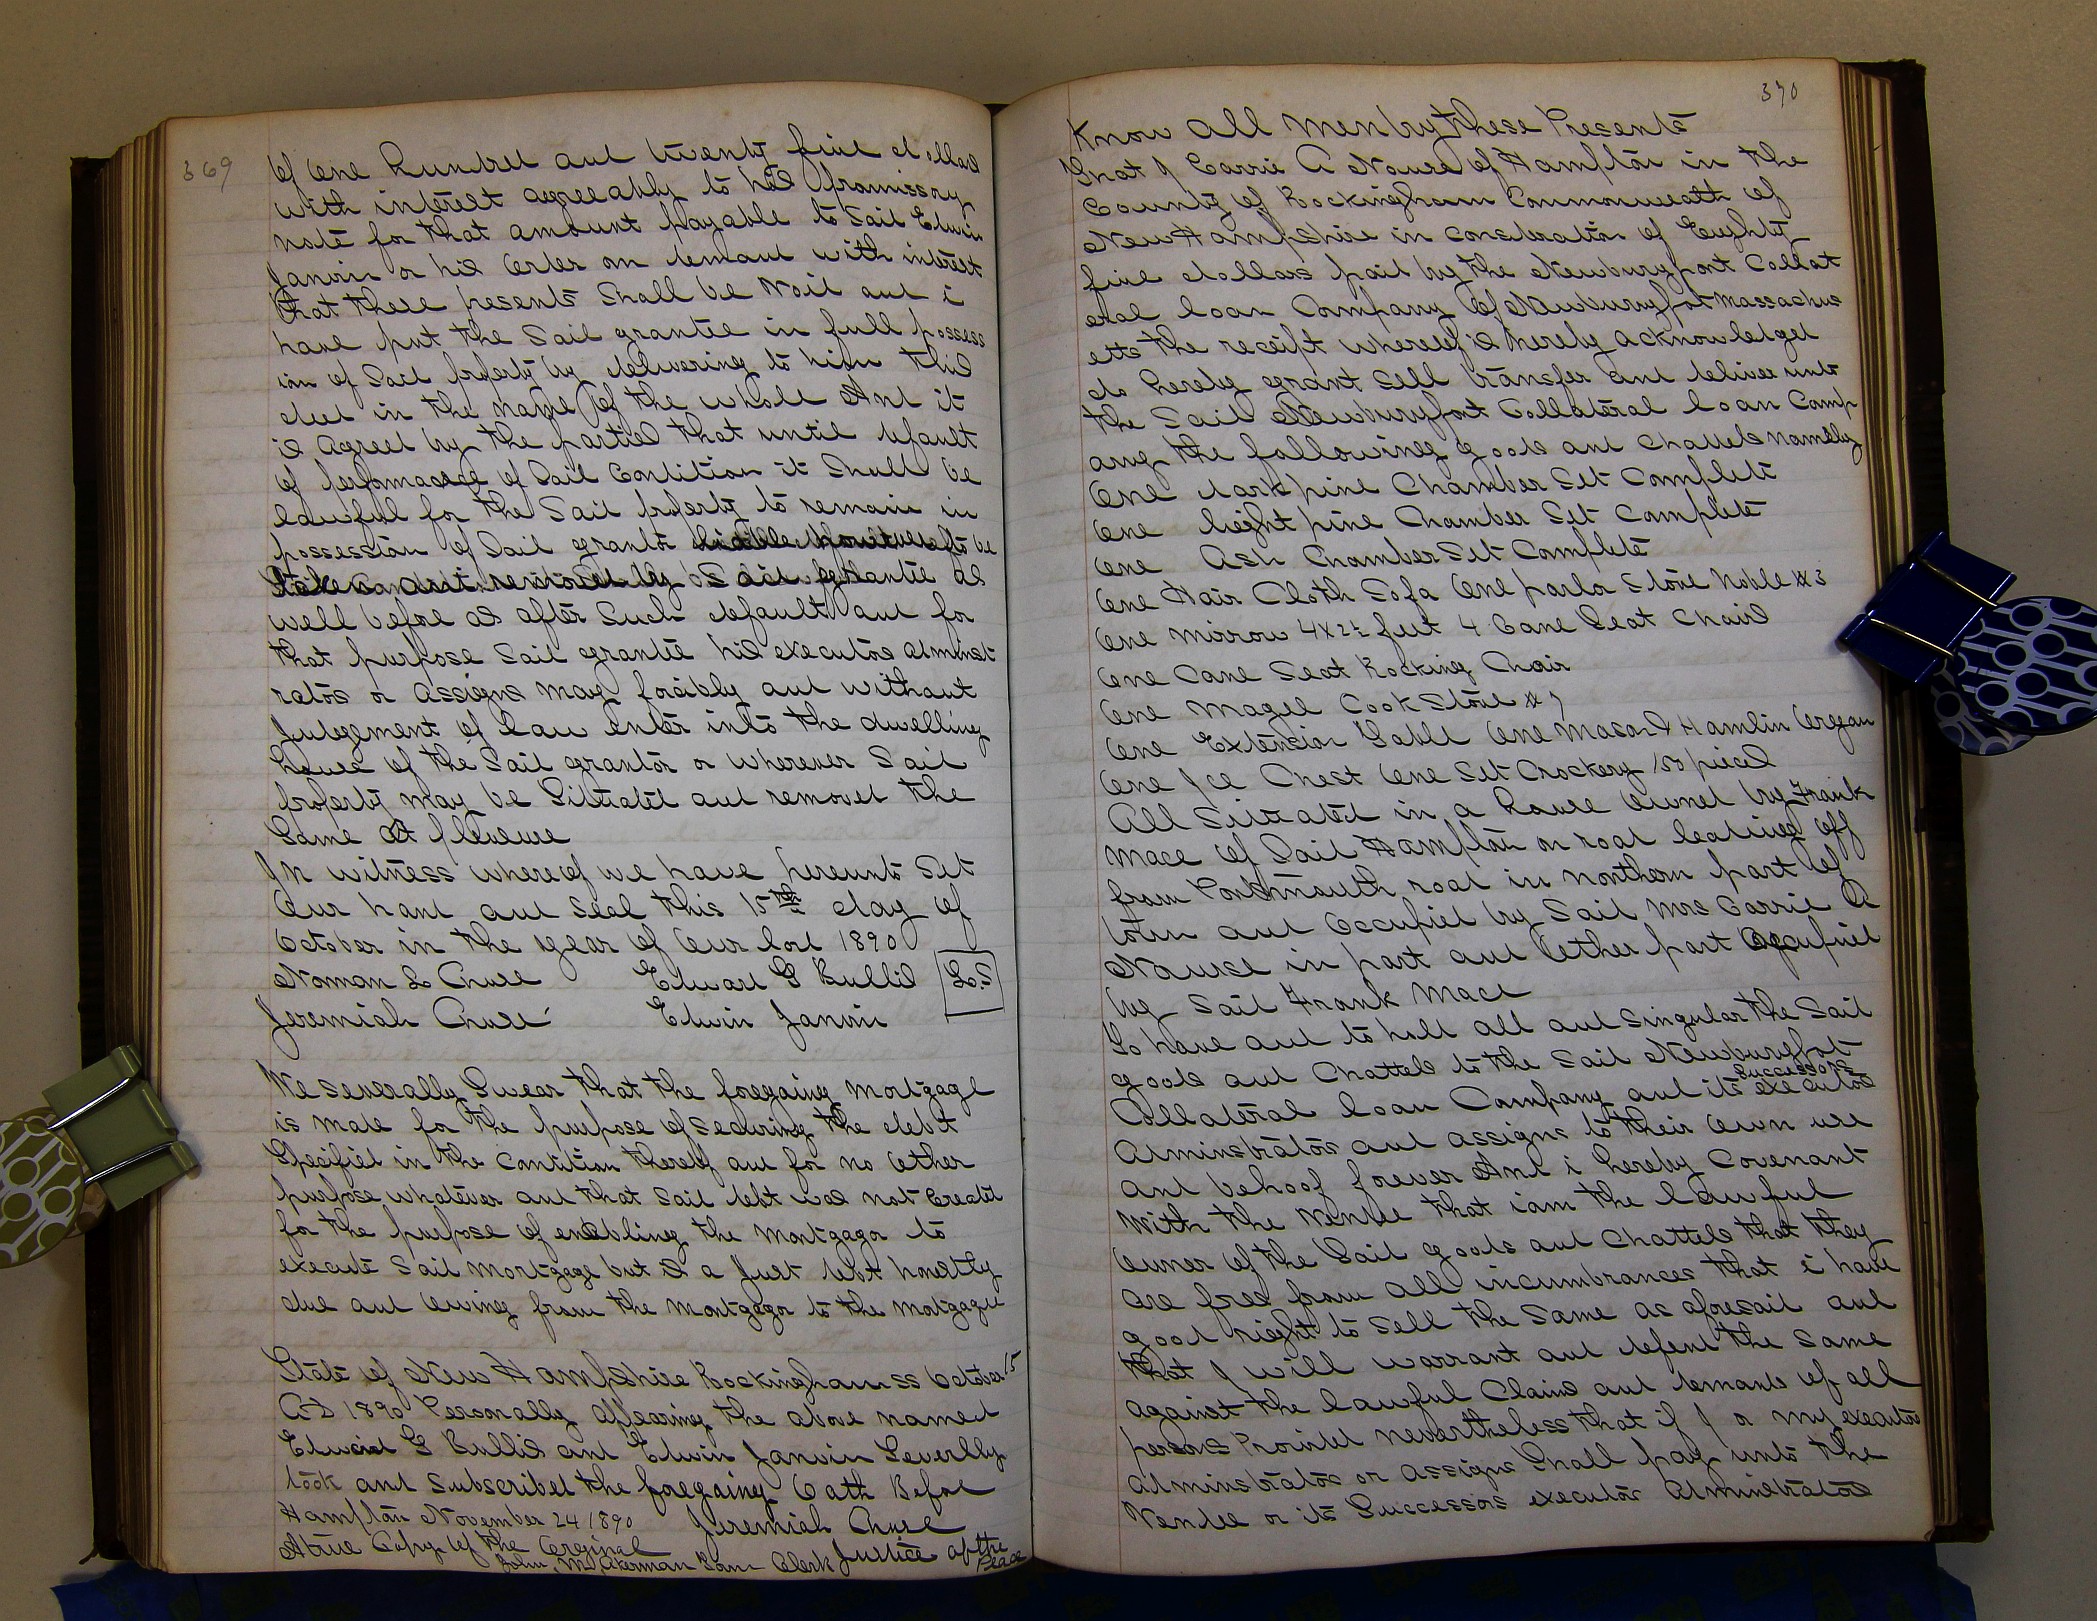 369
of One Hundred and twenty five dollars
with interest agreeably to his promissory
note for that amount payable to Said Edwin
Janvrin or his Order on demand with interest
that these presents Shall be Void and i
have put the Said grantee in full possess
ion of Said property by delivering to him this
deed in the name of the whole And it
is Agreed by the parties that until default
of performance of Said Condition it Shall be
lawful for the Said property to remain in
possession of Said grantor to be
by Said grantee as
well before as after Such default and for
that purpose Said grantee his executos adminst
ratos or Assigns may forcibly and without
Judgement of Law enter into the dwelling
house of the Said grantor or wherever Said
property may be Situated and removed the
Same at pleasure
In witness whereof we have hereunto Set
Our hand and Seal this 15th day of
October in the year of Our lord 1890
Norman L Chase Edward G Bullis L.S
Jeremiah Chase Edwin Janvrin
We severally Swear that the foregoing Mortgage
is made for the purpose of securing the debt
Specified in the Condition thereof and for no Other
purpose whatever and that Said debt was not Created
for the purpose of enabling the Mortgagor to
execute Said Mortgage but is a Just debt honestly
due and Owing from the Mortgagor to the Mortgagee
State of New Hampshire Rockingham ss October 15
AD 1890 Personally Appearing the above named
Edward G Bullis and Edwin Janvrin Severlly
took and Subscribed the foregoing Oath Before
Hampton November 24 1890 Jeremiah Chase
A true Copy of the Original Justice of the Peace
John M Akerman Town Clerk
370
Know All Men by these Presents
That I Carrie A Nourse of Hampton in the
County of Rockingham Commonwealth of
New Hampshire in consideration of Eighty
five dollars paid by the Newburyport Collat
eral Loan Company of Newburyport Massachus
etts the receipt whereof is hereby acknowledged
do hereby grant Sell transfer and deliver unto
the Said Newburyport Collateral Loan Comp
any the following goods and Chattels namely
One dark pine Chamber Set Complete
One light pine Chamber Set Complete
One Ash Chamber Set Complete
One Hair Cloth Sofa One parlor Stove Noble # 3
One Mirrow 4x2½ feet 4 Cane Seat Chairs
One Cane Seat Rocking Chair
One Magee Cook Stove # 7
One Extension Table One Mason & Hamlin Organ
One Ice Chest One Set Crockery 150 pieces
All Situated in a House Owned by Frank
Mace of Said Hampton on road leading off
from Portsmouth road in northern part of
town and Occupied by Said Mrs Carrie A
Nourse in part and Other part Occupied
by Said Frank Mace
To have and to hold all and Singular the Said
goods and Chattels to the Said Newburyport
Collateral Loan Company and its successors executos
Adminstratos and assigns to their Own use
and behoof forever And i hereby Covenant
With the Vendee that i am the lawful
Owner of the Said goods and Chattels that they
are free from all incumbrances that i have
good right to Sell the Same as aforesaid and
that I will warrant and defend the Same
against the lawful Claims and demands of all
persons Provided nevertheless that if I or my executos
adminstratos or assigns Shall pay unto the
Vendee or its Successors executos Adminstratos